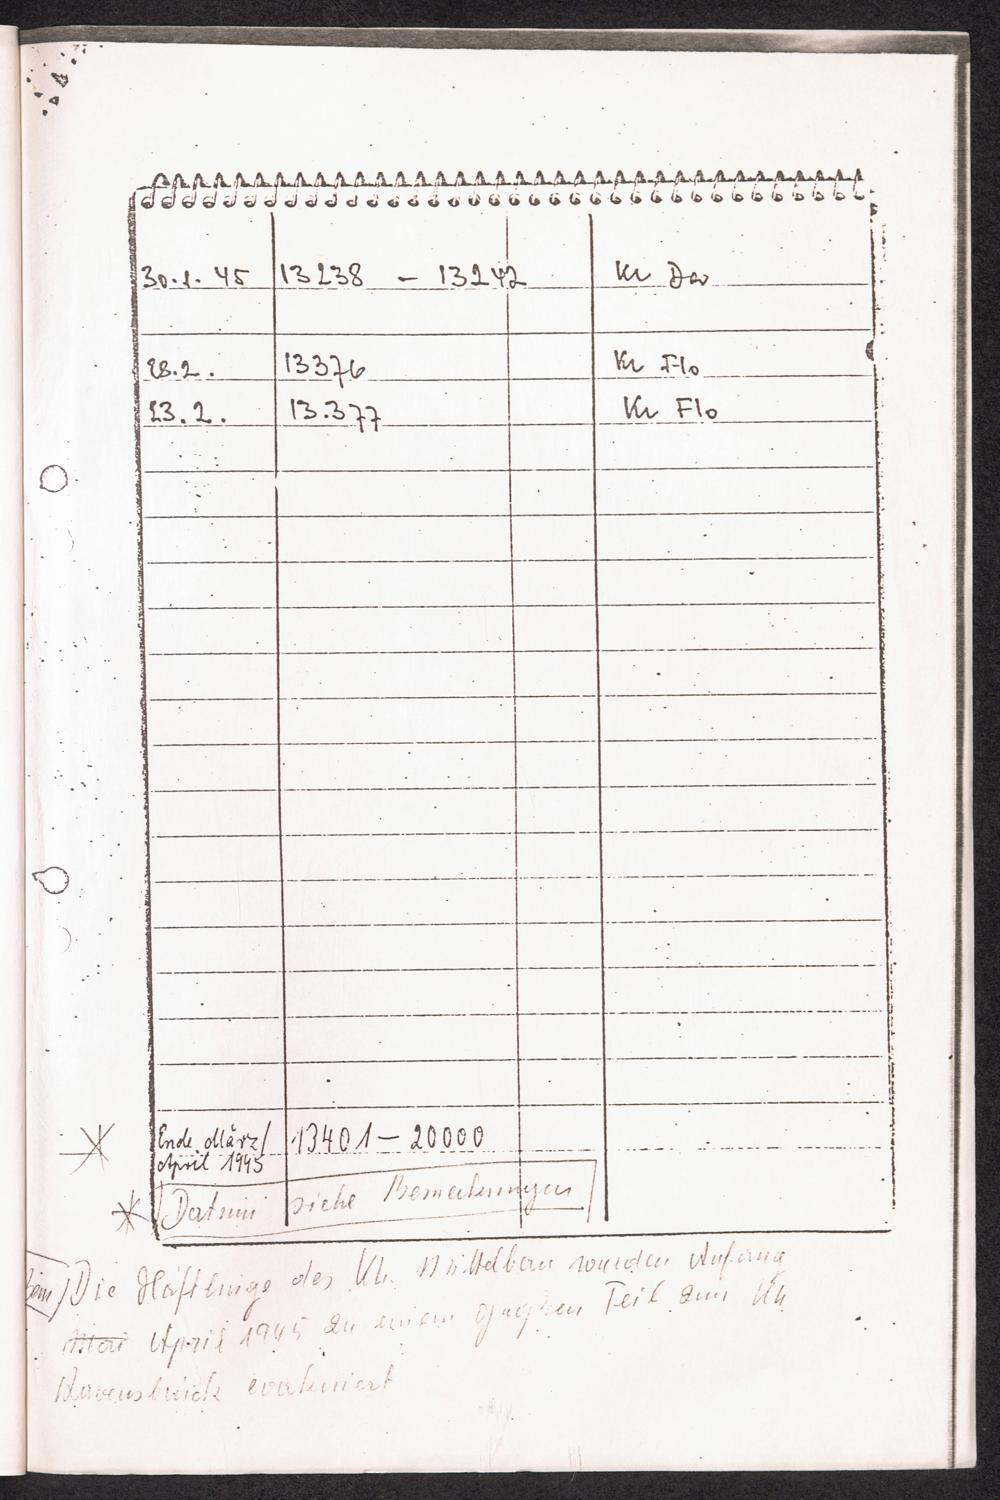 30.1. 45 13238 – 13242 Kl Da
28.2. 13376 Kl Flo
23.2. 13.377 Kl Flo
Ende März/ 13401 – 20000
April 1945
Datum siehe Bemerkungen
Die Häftlinge des KL. Mittelbau wurden Anfang
April 1945 zu einem großen Teil zum KL
Ravensbrück evakuiert